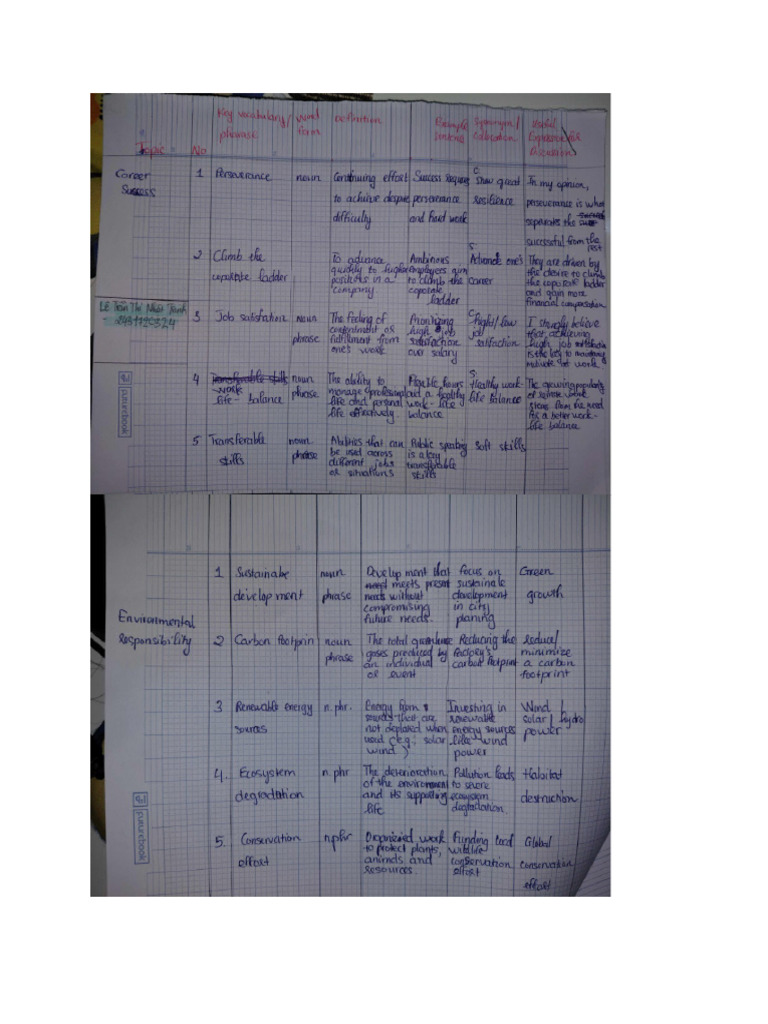 Topic
No
Key vocabulary/
phrase
Word
form
Definition
Example
Synonym/
Collocation
Useful
Discussion
Career
Success
1
Perseverance
noun
Continuing effort
to achieve despite
difficulty
Success requires
perseverance
and hard work
C:
Show great
resilience
In my opinion,
perseverance is what
separates the
successful from the
rest
2
Climb the
coporate ladder
To advance
quickly to higher
positions in a
company
Ambitious
employees aim
to climb the
coporate
ladder
S:
Advance one's
career
They are driven by
the desire to climb
the coporate ladder
and gain more
financial compensation
LÊ Trần Thị Nhật
3
Job satisfaction
noun
phrase
The feeling of
contentment or
fulfillment from
one's work
Prioritizing
high job
satisfaction
over salary
C:
hight/low
job
satifaction
I strongly believe
that achieving
high job satisfaction
is the key to
motivate at work.
4
Transferable skills
work
life - balance
noun
phrase
The ability to
manage professional
life and personal
life effectively.
Flexible hours
aid a healthy
work - life
balance
S:
Healthy work-
life balance
The growing popularity
of remote work
stems from the need
for a better work-
life balance
5
Transferable
skills
noun
phrase
Abilities that can
be used across
different jobs
or situations
Public speaking
is a key
transferable
skills
Soft skills
purunebook
Environmental
Responsibility
1
Sustainabe
development
noun
phrase
Develop ment that
need meets present
needs without
compromising
future needs.
focus on
sustainale
development
in city
planing
Green
growth
2
Carbon footprin
noun
phrase
The total greenhouse
gases produced by
an individual
or event
Reducing the
factory's
carbon footprint
reduce/
minimize
a carbon
footprint
3
Renewable energy
sources
n.phr.
Energy from
sources that are
not depleted when
used (e.g.; solar
wind)
Investing in
renewable
energy sources
like wind
power
Wind /
solar / hydro
power
4.
Ecosystem
degradation
n.phr
The deterioration
of the environment
and its supporting
life
Pollution leads
to severe
ecosystem
degradation.
Habitat
destruction
5.
Conservation
effort
n.phr
Organized work
to protect plants,
animals and
resources.
Funding local
wildlife
conservation
effort
Global
conservation
effort
purunebook